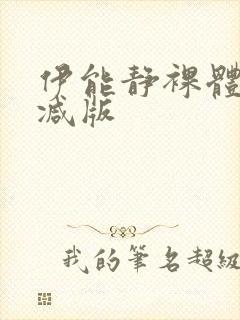 伊能静裸體
减版
我的筆名超級